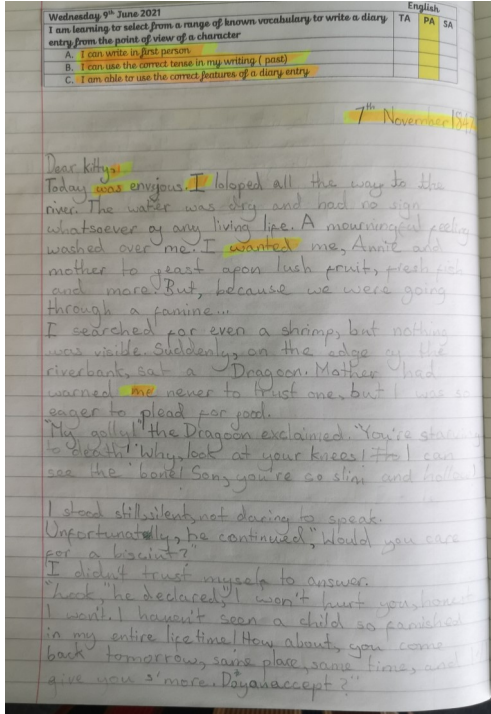 Wednesday 9th June 2021
English
I am learning to select from a range of known vocabulary to write a diary entry from the point of view of a character
TA PA SA
A. I can write in first person
B. I can use the correct tense in my writing ( past)
C. I am able to use the correct features of a diary entry
7th November 184
Dear Kitty,
Today was envyious. I loloped all the way to the
river. The water was dry and had no sign
whatsoever of any living life. A mourningful feeling
washed over me. I wanted me, Annie and
mother to feast apon lush fruit, fresh fish
and more. But, because we were going
through a famine...
I searched for even a shrimp, but nothing
was visible. Suddenly, on the edge of the
riverbank, sat a Dragoon. Mother had
warned me never to trust one, but I was so
eager to plead for food.
"My golly!" the Dragoon exclaimed. "You're starving
to death! Why, look at your knees! I can
see the bone! Son, you're so slim and hollow!
I stood still, silent, not daring to speak.
Unfortunatelly, he continued, "Would you care
for a biscuit?"
I didn't trust myself to answer.
"Look," he declared, "I won't hurt you, honest
I won't. I haven't seen a child so famished
in my entire lifetime! How about, you come
back tomorrow, same place, same time, and I'll
give you s'more. Doyanaccept?"